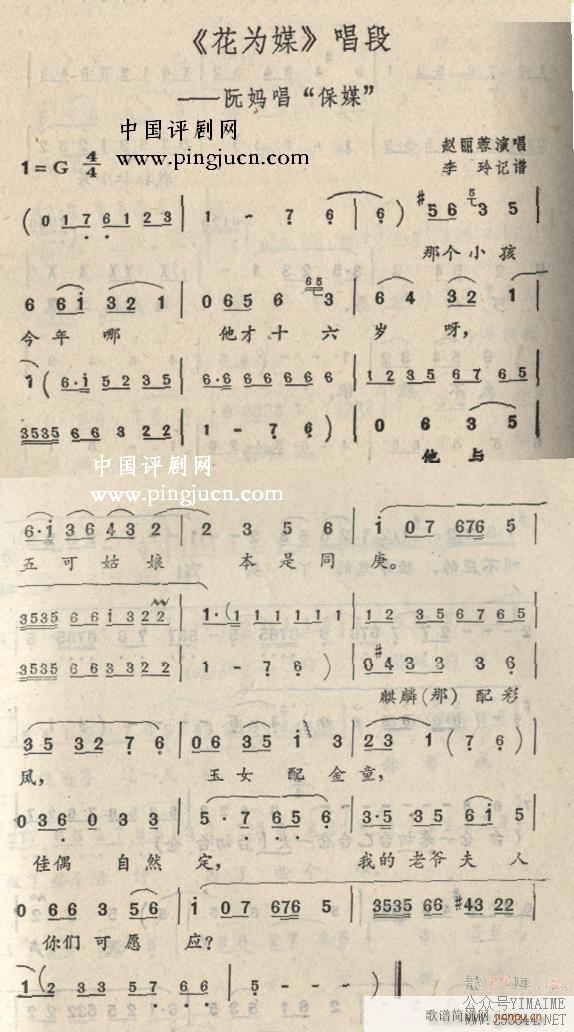 《花为媒》唱段
——阮妈唱“保媒”
中国评剧网
www.pingjucn.com
赵丽蓉演唱
李 玲记谱
1=G 4/4
( 0 1 7 6 1 2 3 | 1 - 7 6 | 6 ) #5 6 3 5
那个小孩
6 6 i 3 2 1 | 0 6 5 6 3 | 6 4 3 2 1
今年哪 他才十六岁呀，
1 ( 6·i 5 2 3 5 | 6·6 6 6 6 6 6 | 1 2 3 5 6 7 6 5
3535 6 6 3 2 2 | 1 - 7 6 ) | 0 6 3 5
他与
中国评剧网
www.pingjucn.com
6·i 3 6 4 3 2 | 2 3 5 6 | i 0 7 676 5
五可姑娘 本是同庚。
3535 6 6 i 3 2 2 | 1·( 1 1 1 1 1 1 | 1 2 3 5 6 7 6 5
3535 6 6 3 2 2 | 1 - 7 6 ) | 0 #4 3 3 3 6
麒麟(那)配彩
3 5 3 2 7 6 | 0 6 3 5 i 3 | 2 3 1 ( 7 6 )
凤， 玉女配金童，
0 3 6 0 3 3 | 5·7 6 5 6 | 3·5 3 5 6 i 5
佳偶自然定， 我的老爷夫人
0 6 6 3 5 6 | i 0 7 676 5 | 3535 6 6 #4 3 2 2
你们可愿应？
1 ( 2 3 3 5 7 6 6 | 1 - - - )
公众号YIMAIME
歌谱简谱网